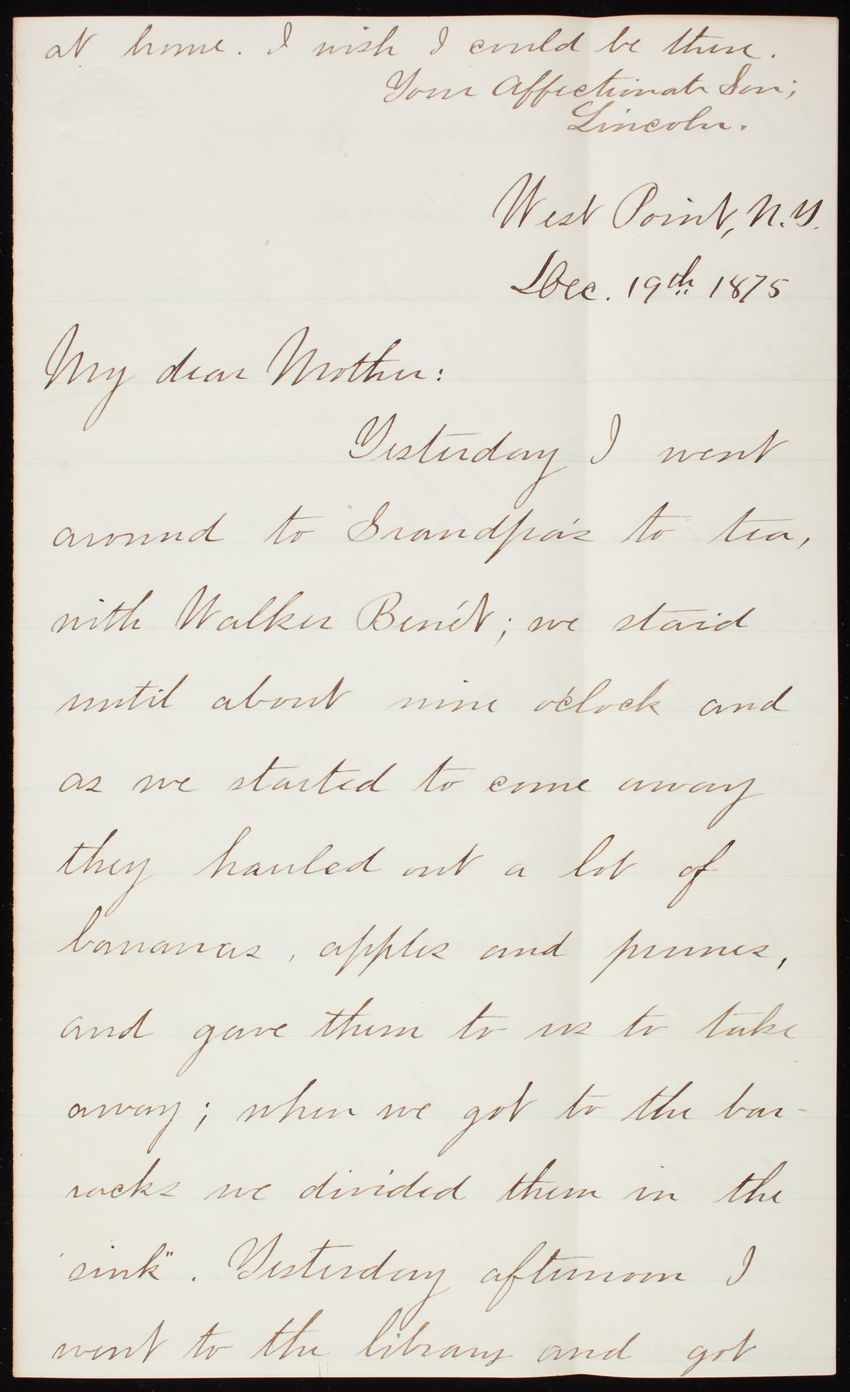 at home. I wish I could be there.
Your Affectionate Son;
Lincoln.
West Point, N.Y.
Dec. 19th 1875
My dear Mother:
Yesterday I went
around to Grandpa's to tea,
with Walker Benét; we staid
until about nine o'clock and
as we started to come away
they hauled out a lot of
bananas, apples and prunes,
and gave them to us to take
away; when we got to the bar-
racks we divided them in the
"sink". Yesterday afternoon I
went to the library and got